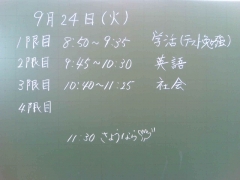 9月24日(火)
1限目 8:50〜9:35 学活(テスト勉強)
2限目 9:45〜10:30 英語
3限目 10:40〜11:25 社会
4限目
11:30 さようなら